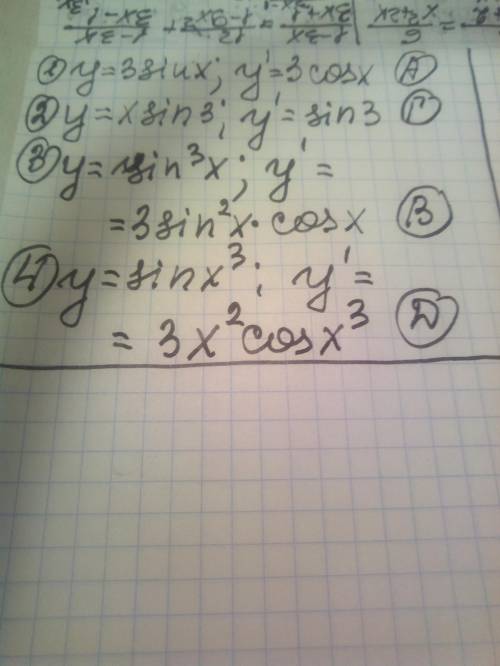 ① y=3sinx; y'=3cosx Ⓐ
② y=xsin3; y'=sin3 Ⓒ
③ y=sin³x; y'=
=3sin²x·cosx Ⓑ
④ y=sinx³; y'=
= 3x²cosx³ Ⓓ